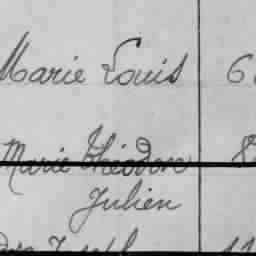 Marie Louis 6
Marie Théodore 8
Julien
Joseph 11